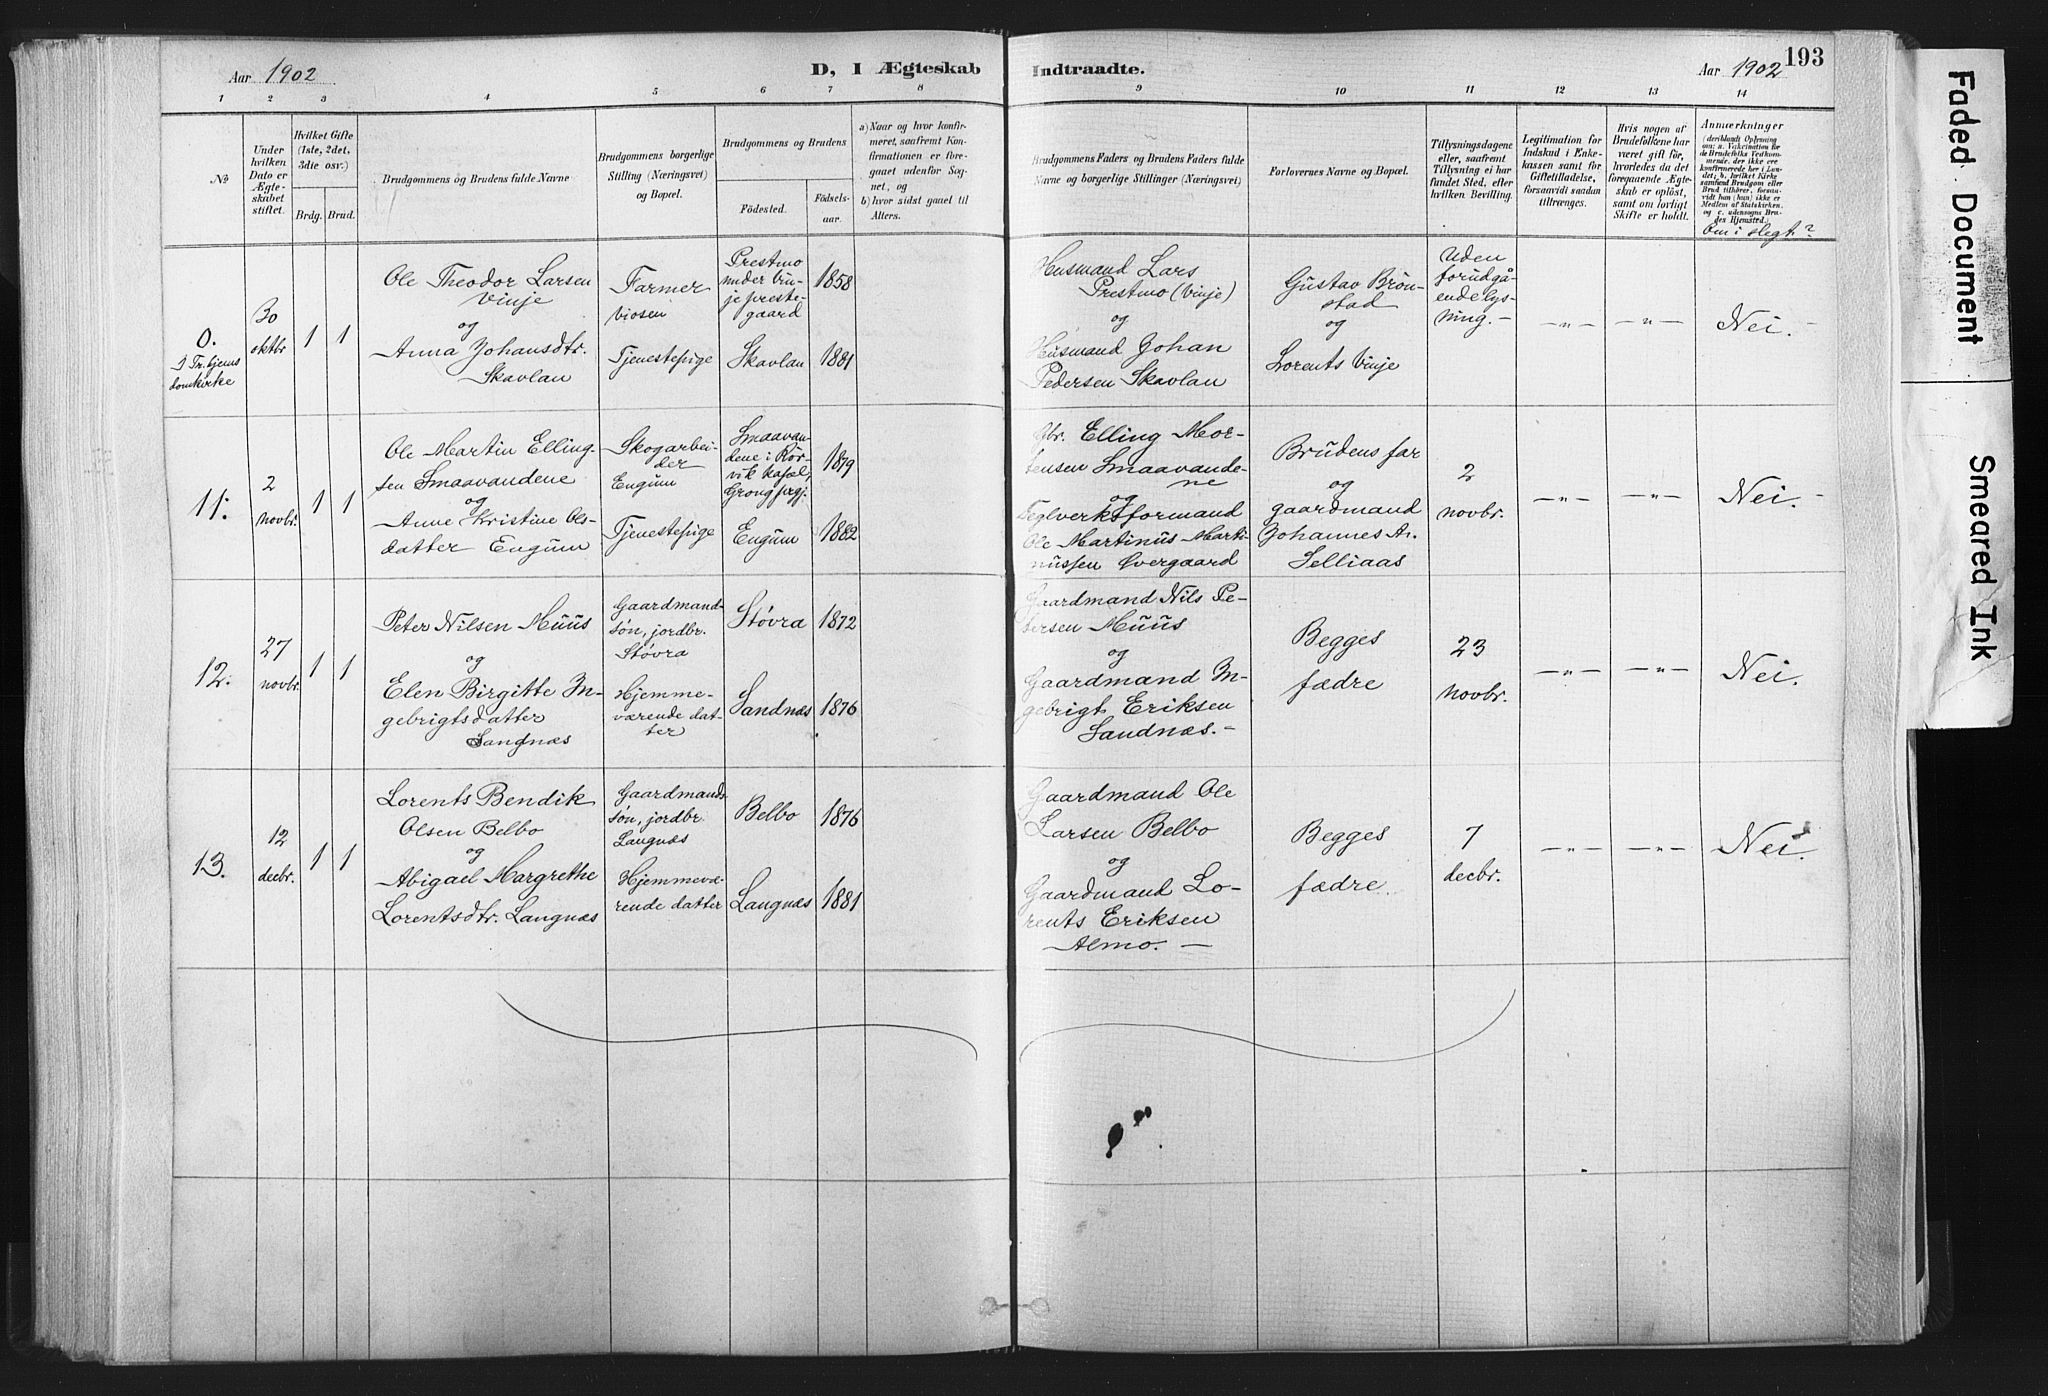 Aar 1902
D, I Ægteskab
Indtraadte.
Aar 1902
193
1 2 3 4 5 6 7 8 9 10 11 12 13 14
№
Under
hvilken
Dato er
Ægte-
skabet
stiftet.
Hvilket Gifte
(1ste, 2det,
3die osv.)
Brdg. Brud.
Brudgommens og Brudens fulde Navne
Brudgommens borgerlige
Stilling (Næringsvei)
og Bopæl.
Brudgommens og Brudens
Fødested.
Fødsels-
aar.
a) Naar og hvor konfir-
meret, saafremt Kon-
firmationen er fore-
gaaet udenfor Sog-
net, og
b) hvor sidst gaaet til
Alters.
Brudgommens Faders og Brudens Faders fulde
Navne og borgerlige Stillinger (Næringsvei)
Forlovernes Navne og Bopæl.
Tillysningsdagene
eller, saafremt
Tillysning ei har
fundet Sted, efter
hvilken Bevilling.
Legitimation for
Indskud i Enke-
kassen samt for
Giftetilladelse,
forsaavidt saadan
tiltrænges.
Hvis nogen af
Brudefolkene har
været gift før,
hvorledes da det
foregaaende Ægte-
skab er opløst,
samt om lovligt
Skifte er holdt.
Anmærkninger
(deriblandt Oplysning
om: a. Vakcination for
de Brudefolks Vedkom-
mende, der ikke ere
konfirmerede her i Lan-
det; b. hvilket Kirke-
samfund Brudgom eller
Brud tilhører, forsaa-
vidt han (hun) ikke er
Medlem af Statskirken,
og c. udensogns Bru-
des Hjemsted.)
Om i slegt?
0.
I Tr.hjems
domkirke
30
oktbr
1 1
Ole Theodor Larsen
Vinje
og
Anna Johansdtr.
Skavlan
Farmer
Viosen
Tjenestepige
Prestmo
under Vin-
je preste-
gaard
Skavlan
1858
1881
Husmand Lars
Prestmo (Vinje)
og
Husmand Johan
Pedersen Skavlan
Gustav Brön-
stad
og
Lorents Vinje
Uden
forudgå-
ende lys-
ning. -
-"- -"- Nei. -
11.
2
novbr.
1 1
Ole Martin Elling-
sen Smaavandene
og
Anne Kristine Ols-
datter Engum
Skogarbei-
der
Engum
Tjenestepige
Smaavan-
dene i Rör-
vik
Grong prgj.
Engum
1879
1882
Gbr. Elling Mor-
tensen Smaavande-
ne
og
Teglverksformand
Ole Martinus Marti-
nussen Øvergaard
Brudens far
og
gaardmand
Johannes A.
Selliaas
2
novbr.
-"- -"- Nei. -
12.
27
novbr.
1 1
Peter Nilsen Muus
og
Elen Birgitte In-
gebrigtsdatter
Sandnæs
Gaardmand-
søn, jordbr.
Støvra
Hjemme-
værende dat-
ter
Støvra
Sandnæs
1872
1876
Gaardmand Nils Pe-
tersen Muus
og
Gaardmand In-
gebrigt Eriksen
Sandnæs. -
Begges
fædre
23
novbr.
-"- -"- Nei.
13.
12
decbr.
1 1
Lorents Bendik
Olsen Belbo
og
Abigael Margrethe
Lorentsdtr. Langnæs
Gaardmands-
søn, jordbr.
Langnæs
Hjemmevæ-
rende datter
Belbo
Langnæs
1876
1881
Gaardmand Ole
Larsen Belbo
og
Gaardmand Lo-
rents Eriksen
Almo. -
Begges
fædre.
7
decbr.
-"- -"- Nei.
Faded Document
Smeared Ink